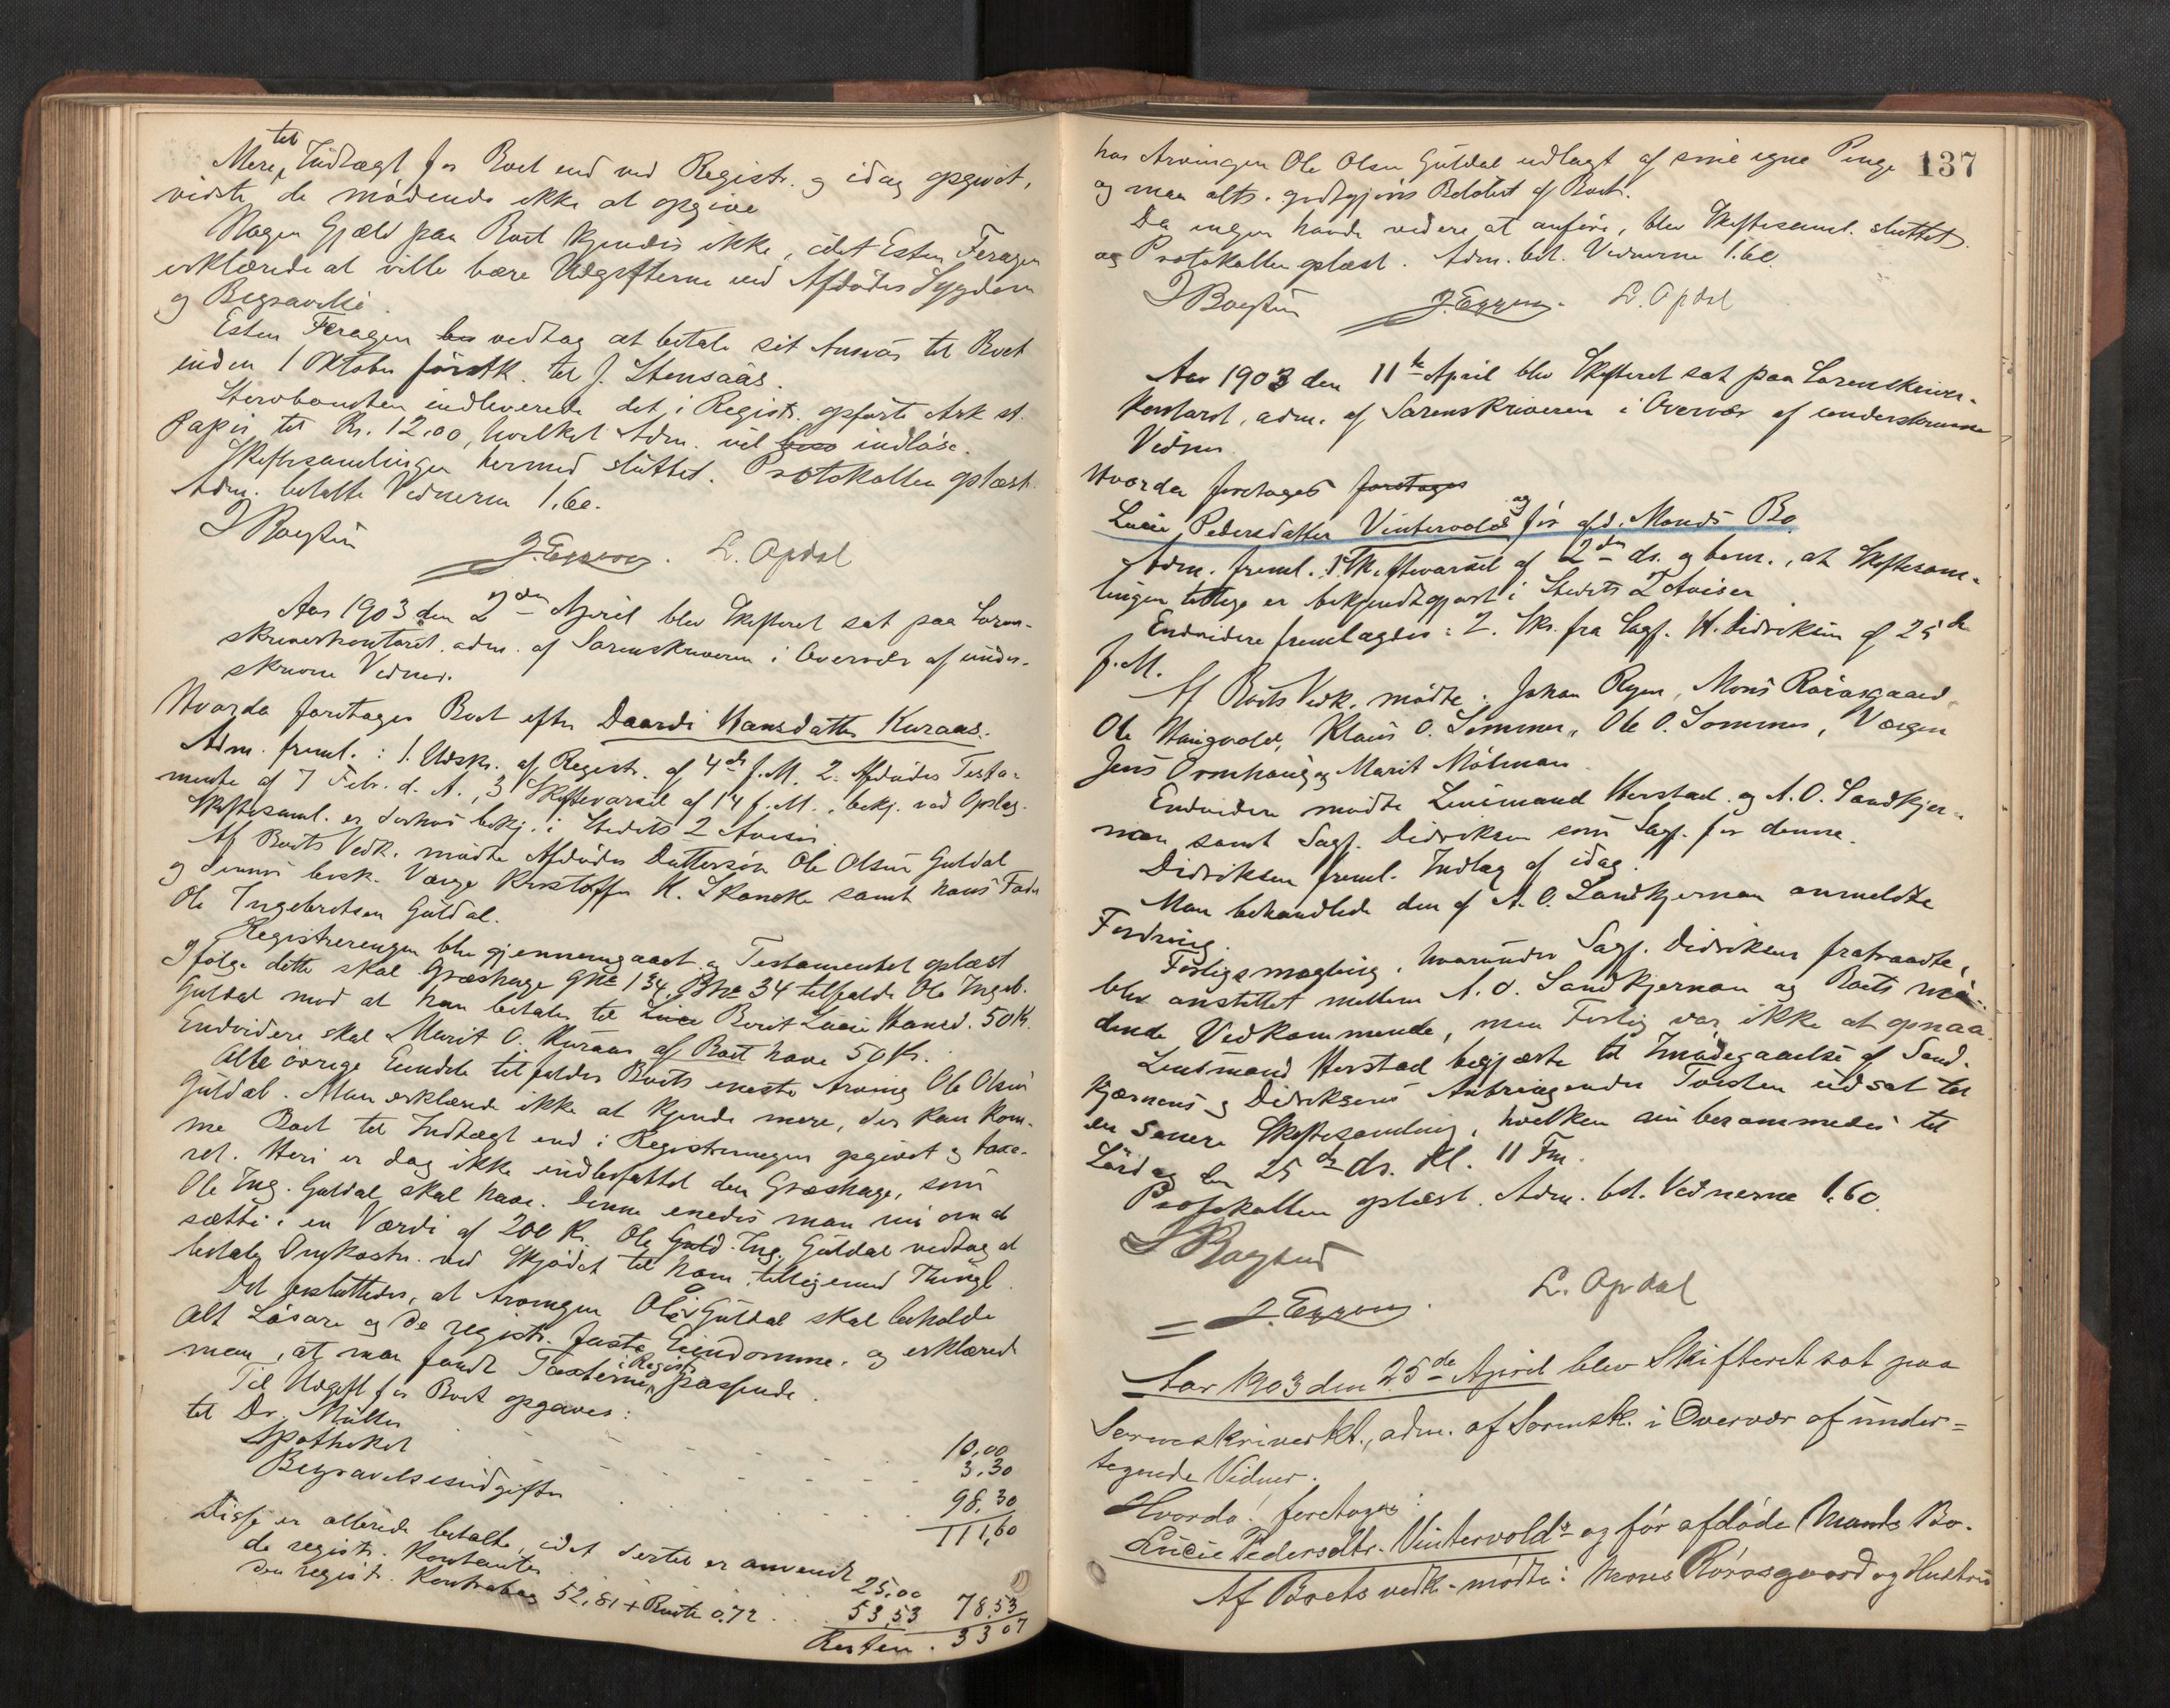 Mere til Indtægt for Boet end ved Registr. og idag opgivet,
vidste de mødende ikke at opgive
Nogen Gjæld paa Boet kjendes ikke, idet Esten Feragen
erklærede at ville bære Udgifterne ved Afdødes Sygdom
og Begravelse.
Esten Feragen vedtog at betale sit Ansvar til Boet
inden 1 Oktober førstk. til J. Stensaas.
Stervboenken indleverede det i Registr. opførte Ark st.
Papir til Kr. 12.00, hvilket Adm. vil indløse.
Skiftesamlingen hermed sluttet. Protokollen oplæst.
Adm. betalte Vidnerne 1.60.
J. Eggen. L. Opdal
Aar 1903 den 2den April blev Skifteret sat paa Soren-
skriverkontoret, adm. af Sorenskriveren i Overvær af under-
skrevne Vidner.
Hvorda foretoges Boet efter Daardi Hansdatter Kuraas.
Adm. freml.: 1. Udskr. af Registr. af 4de f. M. 2. Afdødes Testa-
mente af 7 Febr. d. A., 3 Skiftevarsel af 14 f. M., bekj. ved Opslag.
Skiftesaml. er derhos bekj. i Stedets 2 Aviser.
Af Boets Vedk. mødte Afdødes Dattersøn Ole Olsen Guldal
og dennes besk. Værge Kristoffer H. Skancke samt hans Fader
Ole Ingebretsen Guldal.
Registreringen blev gjennemgaaet og Testamentet oplæst
Ifølge dette skal Græshage GNr 134, BNr 34 tilfalde Ole Ingeb.
Guldal mod at han betaler til Berit Lucie Hansd. 50 Kr.
Endvidere skal Marit O. Kuraas af Boet have 50 Kr.
Alle øvrige Eiendele tilfalder Boets eneste Arving Ole Olsen
Guldal. Man erklærede ikke at kjende mere, der kan kom-
me Boet til Indtægt end i Registreringen opgivet og taxe-
ret. Heri er dog ikke indbefattet den Græshage, som
Ole Ing. Guldal skal have. Denne enedes man nu om at
sætte i en Værdi af 200 Kr. Ole Ing. Guldal vedtog at
betale Omkostn. ved Skjødet til ham tilligemed Thingl.
Det besluttedes, at Arvingen Ole O Guldal skal beholde
alt Løsøre og de registr. faste Eiendomme, og erklærede
man, at man fandt Taxterne i Registr. passende.
Til Udgift for Boet opgaves:
til Dr. Müller 10,00
Apotheket 3.30
Begravelsesudgifter 98,30
111,60
Disse er allerede betalte, idet dertil er anvendt
de registr. Kontanter 25,00
den registr. Kontrabog 52,81 + Rente 0,72 53,53 78,53
Resten . 33 07
137
har Arvingen Ole Olsen Guldal udlagt af sine egne Penge
og maa alts. godtgjøres Beløbet af Boet.
Da ingen havde videre at anføre, blev Skiftesaml. sluttet
og Protokollen oplæst. Adm. bet. Vidnerne 1.60.
J. Eggen. L. Opdal
Aar 1903 den 11te April blev Skifteret sat paa Sorenskriver-
kontoret, adm. af Sorenskriveren i Overvær af underskrevne
Vidner.
Hvorda foretoges foretoges
Lucie Pedersdatter Vintervolds og før afd. Mands Bo
Adm. freml. 1. Skiftevarsel af 2den ds. og bem., at Skiftesam-
lingen tillige er bekjendtgjort i Stedets 2 Aviser.
Endvidere fremlagdes: 2. Skr. fra Sagf. H. Didriksen af 25de
f. M.
Af Boets Vedk. mødte: Johan Ryen, Mons Rørosgaard,
Ole Haugvold, Klaus O. Sommer, Ole O. Sommer, Værgen
Jens Ormhaug og Marit Mølman.
Endvidere mødte Lensmand Herstad og A. O. Sandkjer-
nan samt Sagf. Didriksen som Sagf. for denne.
Didriksen freml. Indlæg af idag.
Man behandlede den af A. O. Sandkjernan anmeldte
Fordring.
Forligsmægling, hvorunder Sagf. Didriksen fratraadte,
blev anstillet mellem A. O. Sandkjernan og Boets mø-
dende Vedkommende, men Forlig var ikke at opnaa.
Lensmand Herstad begjærte til Imødegaaelse af Sand-
kjernans og Didriksens Anbringender Tvisten udsat til
en senere Skiftesamling, hvilken nu berammedes til
Lørdag den 25de ds. Kl. 11 Fm.
Protokollen oplæst. Adm. bet. Vidnerne 1.60.
L. Opdal
J. Eggen.
Aar 1903 den 25de April blev Skifteret sat paa
Sorenskriverkt., adm. af Sorensk. i Overvær af under-
tegnede Vidner.
Hvorda foretoges:
Lucie Pedersdtr. Vintervolds og før afdøde Mands Bo.
Af Boets vedk. mødte: Mons Rørosgaard og Hustru